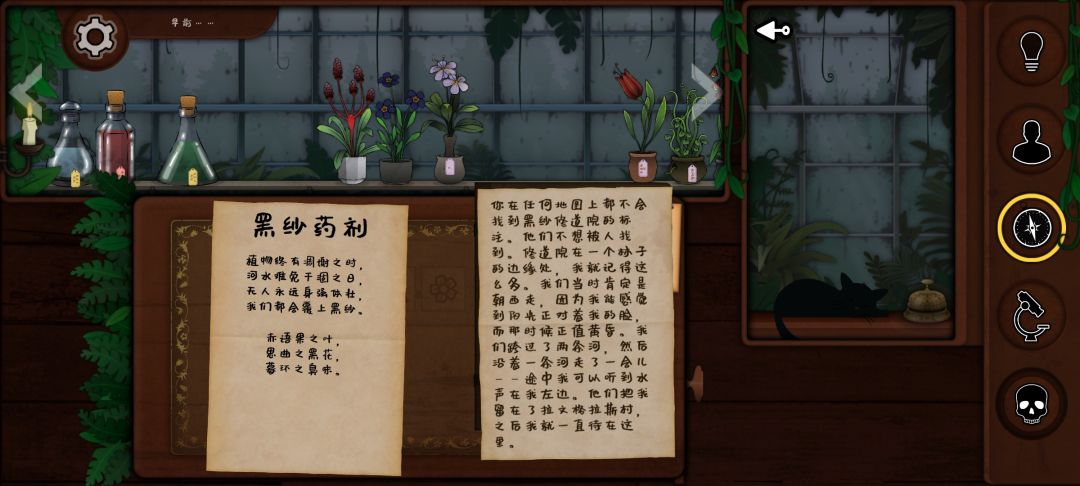 早前……
黑纱药剂
植物终有凋谢之时，
河水难免干涸之日，
无人永远身强体壮，
我们都会覆上黑纱。
赤语果之叶，
恩曲之黑花，
暮环之臭味。
你在任何地图上都不会
找到黑纱修道院的标
注。他们不想被人找
到。修道院在一个林子
的边缘处，我就记得这
么多。我们当时肯定是
朝西走，因为我能感觉
到阳光正对着我的脸，
而那时候正值黄昏。我
们跨过了两条河，然后
沿着一条河走了一会儿
--途中我可以听到水
声在我左边。他们把我
留在了拉文格拉斯村，
之后我就一直待在这
里。